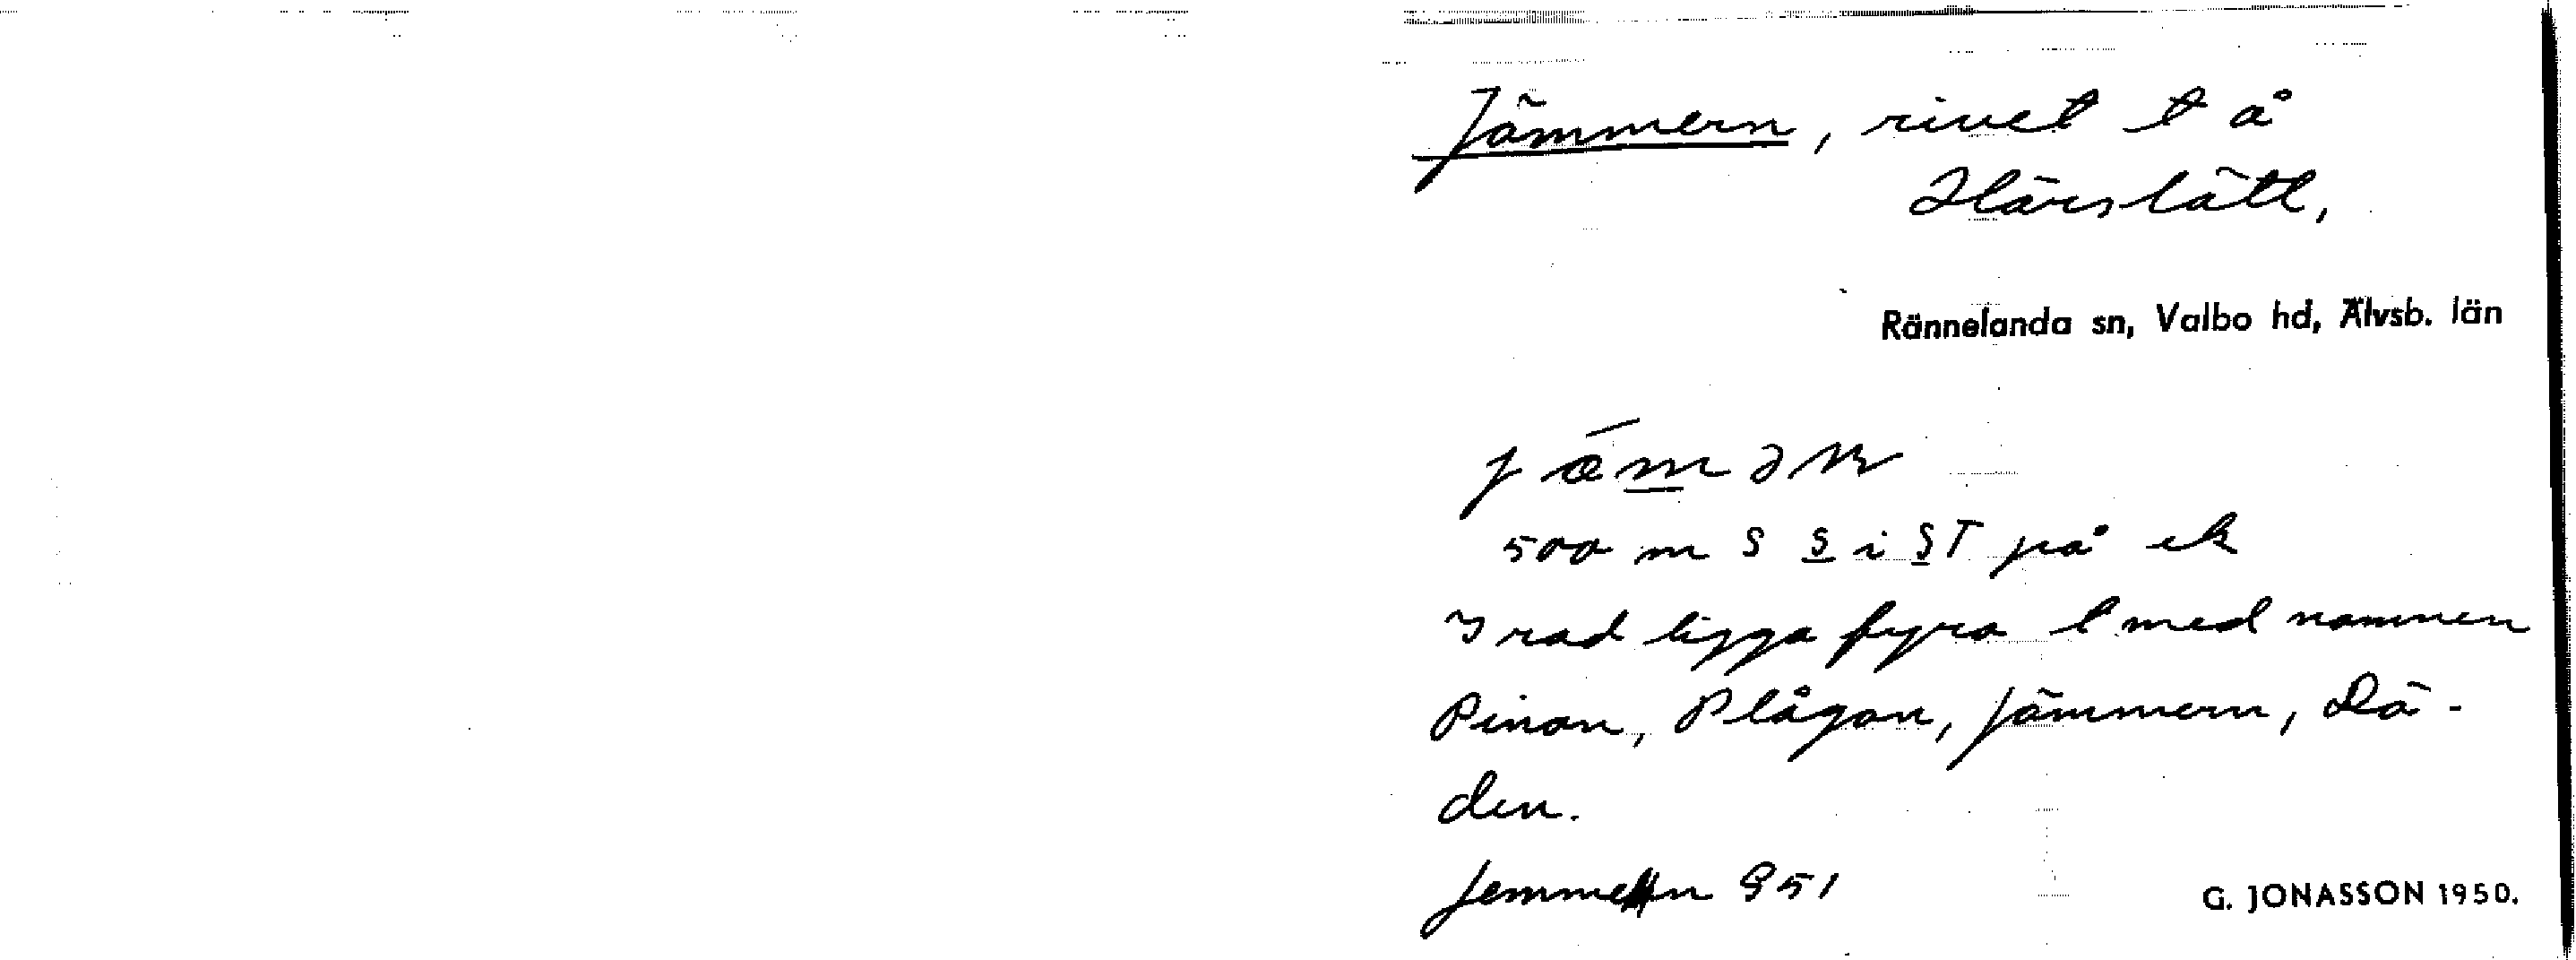 Jämmern, rivet t å
Härslätt,
Rännelanda sn, Valbo hd, Älvsb. län
jæ̀mən
500 m S S i ST på ek
I rad ligga fyra t med namnen
Pinan, Plågan, Jämmern, Dö-
den.
Jemmern 951
G. JONASSON 1950.